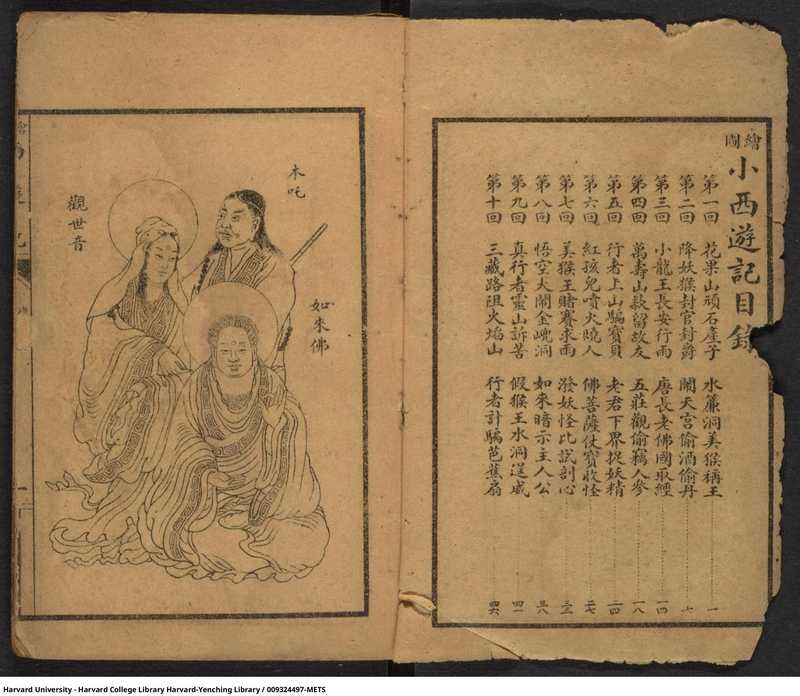 繪圖
小西遊記目錄
第一回 花果山頑石產子 水簾洞美猴稱王 一
第二回 降妖猴封官封爵 鬧天宮偷酒偷丹 七
第三回 小龍王長安行雨 唐長老佛國取經 一四
第四回 萬壽山款留故友 五莊觀偷竊人參 一八
第五回 行者上山騙寶貝 老君下界捉妖精 二四
第六回 紅孩兒噴火燒人 佛菩薩仗寶收怪 二七
第七回 美猴王賭賽求雨 潑妖怪比試剖心 三三
第八回 悟空大鬧金𠒇洞 如來暗示主人公 三八
第九回 真行者靈山訴苦 假猴王水洞逞威 四一
第十回 三藏路阻火焰山 行者計騙芭蕉扇 四六
木吒
如來佛
觀世音
Harvard University - Harvard College Library Harvard-Yenching Library / 009324497-METS